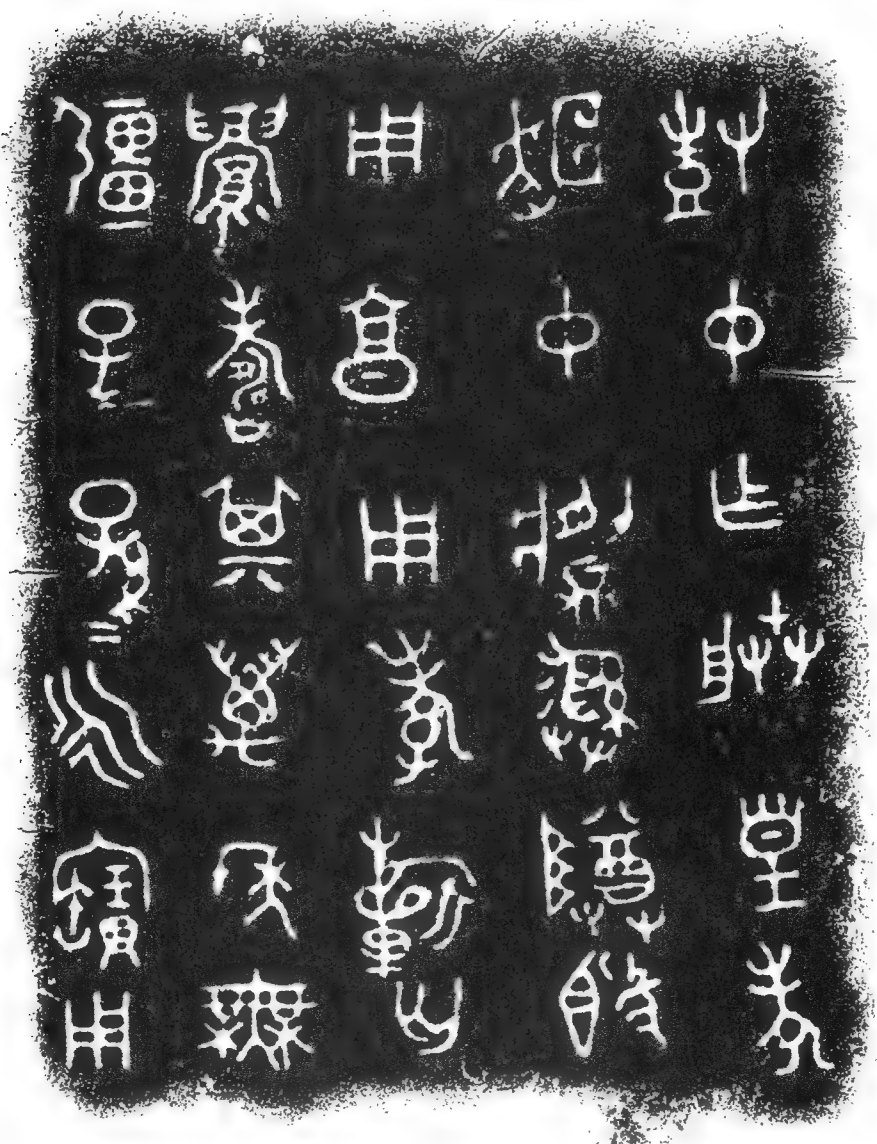 中乍朕皇考
趄中彝尊
用享用孝祈匄
眉壽其萬年無
疆子孫=永寶用